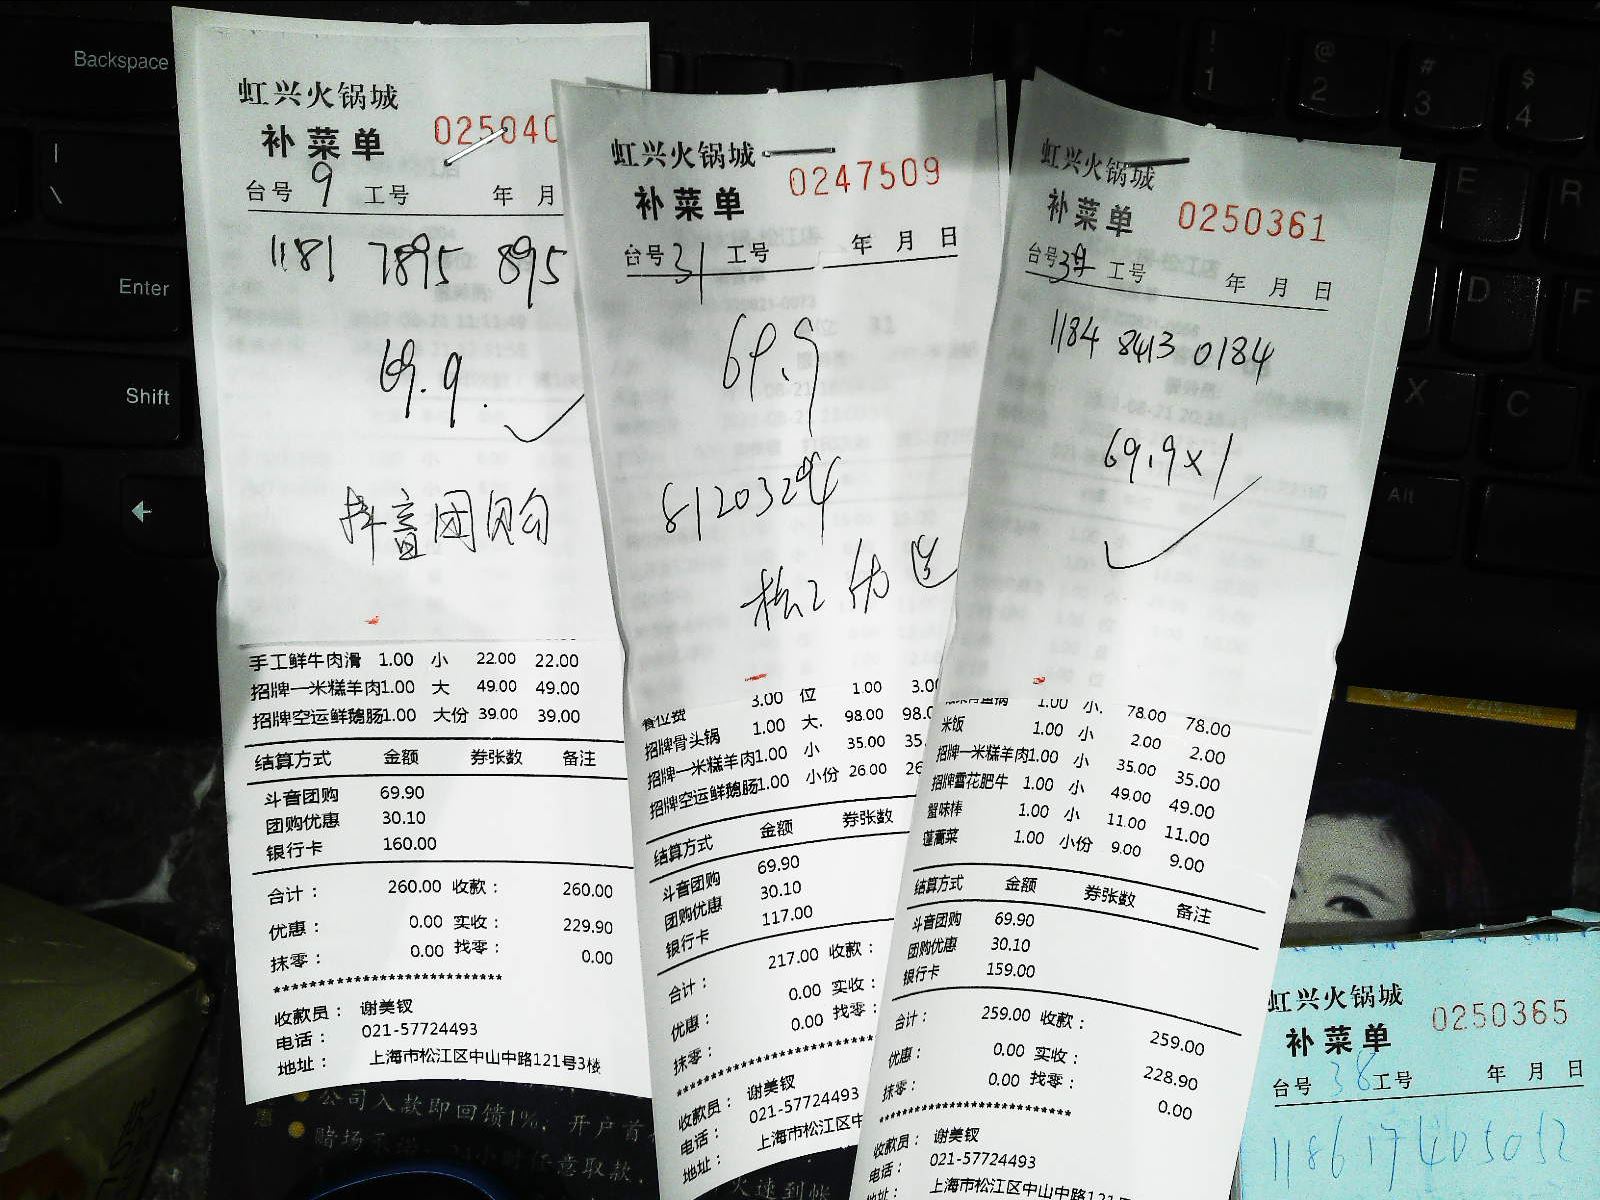 Backspace
Enter
Shift
Alt
! 1
@ 2
# 3
$ 4
E
R
D
F
X
C
虹兴火锅城
补菜单 025040
台号 9 工号 年 月
1181 7895 895
69.9.
抖音团购
手工鲜牛肉滑 1.00 小 22.00 22.00
招牌一米糕羊肉1.00 大 49.00 49.00
招牌空运鲜鹅肠1.00 大份 39.00 39.00
结算方式 金额 券张数 备注
斗音团购 69.90
团购优惠 30.10
银行卡 160.00
合计： 260.00 收款： 260.00
优惠： 0.00 实收： 229.90
抹零： 0.00 找零： 0.00
******************************
收款员： 谢美钗
电话： 021-57724493
地址： 上海市松江区中山中路121号3楼
虹兴火锅城
补菜单 0247509
台号 31 工号 年 月 日
69.9
6120324
松江优选
餐位费 3.00 位 1.00 3.0
招牌骨头锅 1.00 大. 98.00 98.0
招牌一米糕羊肉1.00 小 35.00 35.
招牌空运鲜鹅肠1.00 小份 26.00 26
结算方式 金额 券张数
斗音团购 69.90
团购优惠 30.10
银行卡 117.00
合计： 217.00 收款：
优惠： 0.00 实收：
抹零： 0.00 找零：
收款员： 谢美钗
电话： 021-57724493
地址： 上海市松江区中
虹兴火锅城
补菜单 0250361
台号 工号 年 月 日
1184 8413 0184
69.9×1
1.00 小. 78.00 78.00
米饭 1.00 小 2.00 2.00
招牌一米糕羊肉1.00 小 35.00 35.00
招牌雪花肥牛 1.00 小 49.00 49.00
蟹味棒 1.00 小 11.00 11.00
蓬蒿菜 1.00 小份 9.00 9.00
结算方式 金额 券张数 备注
斗音团购 69.90
团购优惠 30.10
银行卡 159.00
合计： 259.00 收款： 259.00
优惠： 0.00 实收： 228.90
抹零： 0.00 找零： 0.00
******************************
收款员： 谢美钗
电话： 021-57724493
地址： 上海市松江区中山中路121
虹兴火锅城
补菜单 0250365
台号 38 工号 年 月 日
1186 17405052
公司入款即回馈1%，开户首
赌场承诺 24小时任意取款，
火速到帐